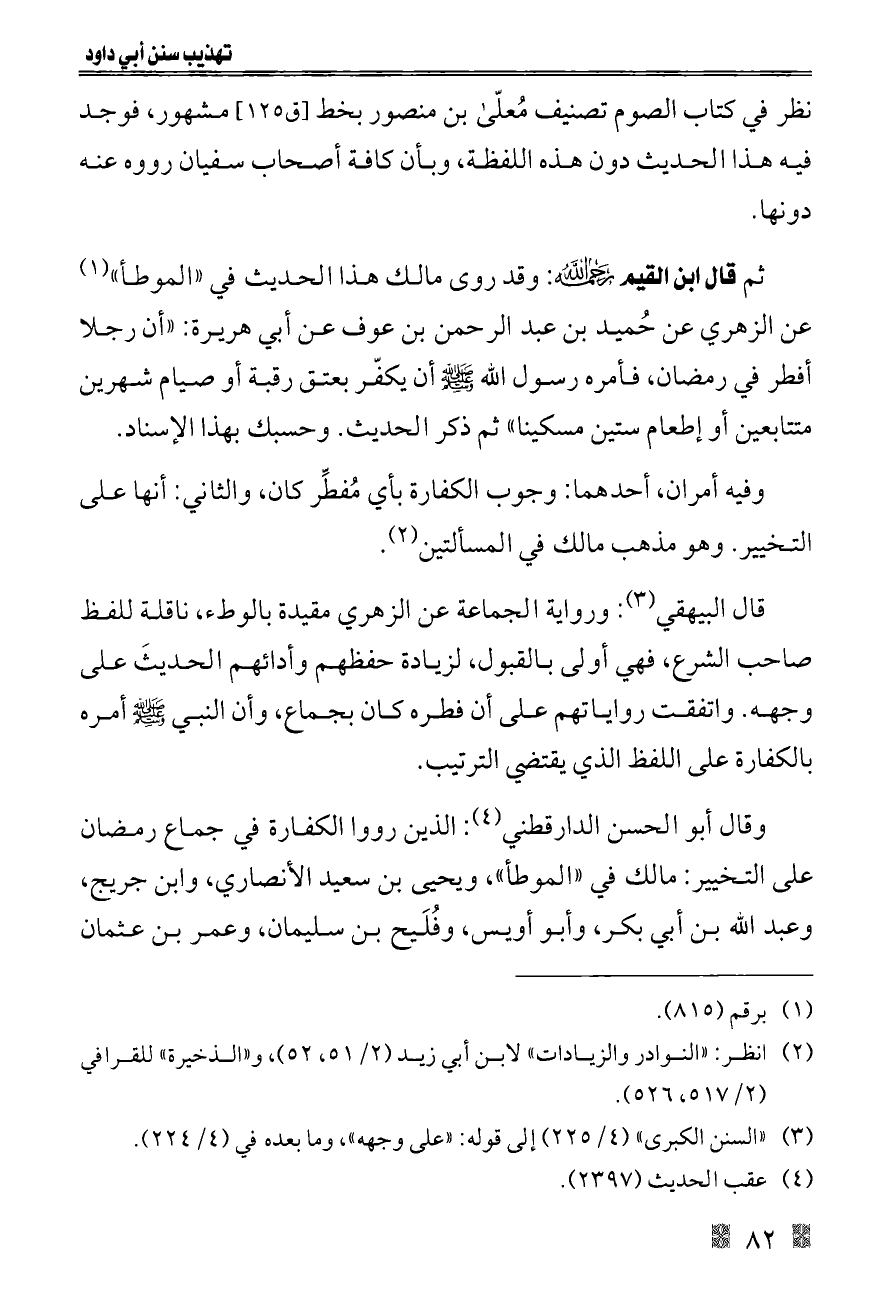 تهذيب سنن أبي داود
نظر في كتاب الصوم تصنيف مُعلّىٰ بن منصور بخط [ق١٢٥] مشهور، فوجد
فيه هذا الحديث دون هذه اللفظة، وبأن كافة أصحاب سفيان رووه عنه
دونها.
ثم قال ابن القيم رَحِمَهُ اللَّهُ: وقد روى مالك هذا الحديث في «الموطأ»(١)
عن الزهري عن حُميد بن عبد الرحمن بن عوف عن أبي هريرة: «أن رجلا
أفطر في رمضان، فأمره رسول الله ﷺ أن يكفّر بعتق رقبة أو صيام شهرين
متتابعين أو إطعام ستين مسكينا» ثم ذكر الحديث. وحسبك بهذا الإسناد.
وفيه أمران، أحدهما: وجوب الكفارة بأي مُفطِّر كان، والثاني: أنها على
التخيير. وهو مذهب مالك في المسألتين(٢).
قال البيهقي(٣): ورواية الجماعة عن الزهري مقيدة بالوطء، ناقلة للفظ
صاحب الشرع، فهي أولى بالقبول، لزيادة حفظهم وأدائهم الحديثَ على
وجهه. واتفقت رواياتهم على أن فطره كان بجماع، وأن النبي ﷺ أمره
بالكفارة على اللفظ الذي يقتضي الترتيب.
وقال أبو الحسن الدارقطني(٤): الذين رووا الكفارة في جماع رمضان
على التخيير: مالك في «الموطأ»، ويحيى بن سعيد الأنصاري، وابن جريج،
وعبد الله بن أبي بكر، وأبو أويس، وفُلَيح بن سليمان، وعمر بن عثمان
(١) برقم (٨١٥).
(٢) انظر: «النوادر والزيادات» لابن أبي زيد (٢/ ٥١، ٥٢)، و«الذخيرة» للقرافي
(٢/ ٥١٧، ٥٢٦).
(٣) «السنن الكبرى» (٤/ ٢٢٥) إلى قوله: «على وجهه»، وما بعده في (٤/ ٢٢٤).
(٤) عقب الحديث (٢٣٩٧).
٨٢